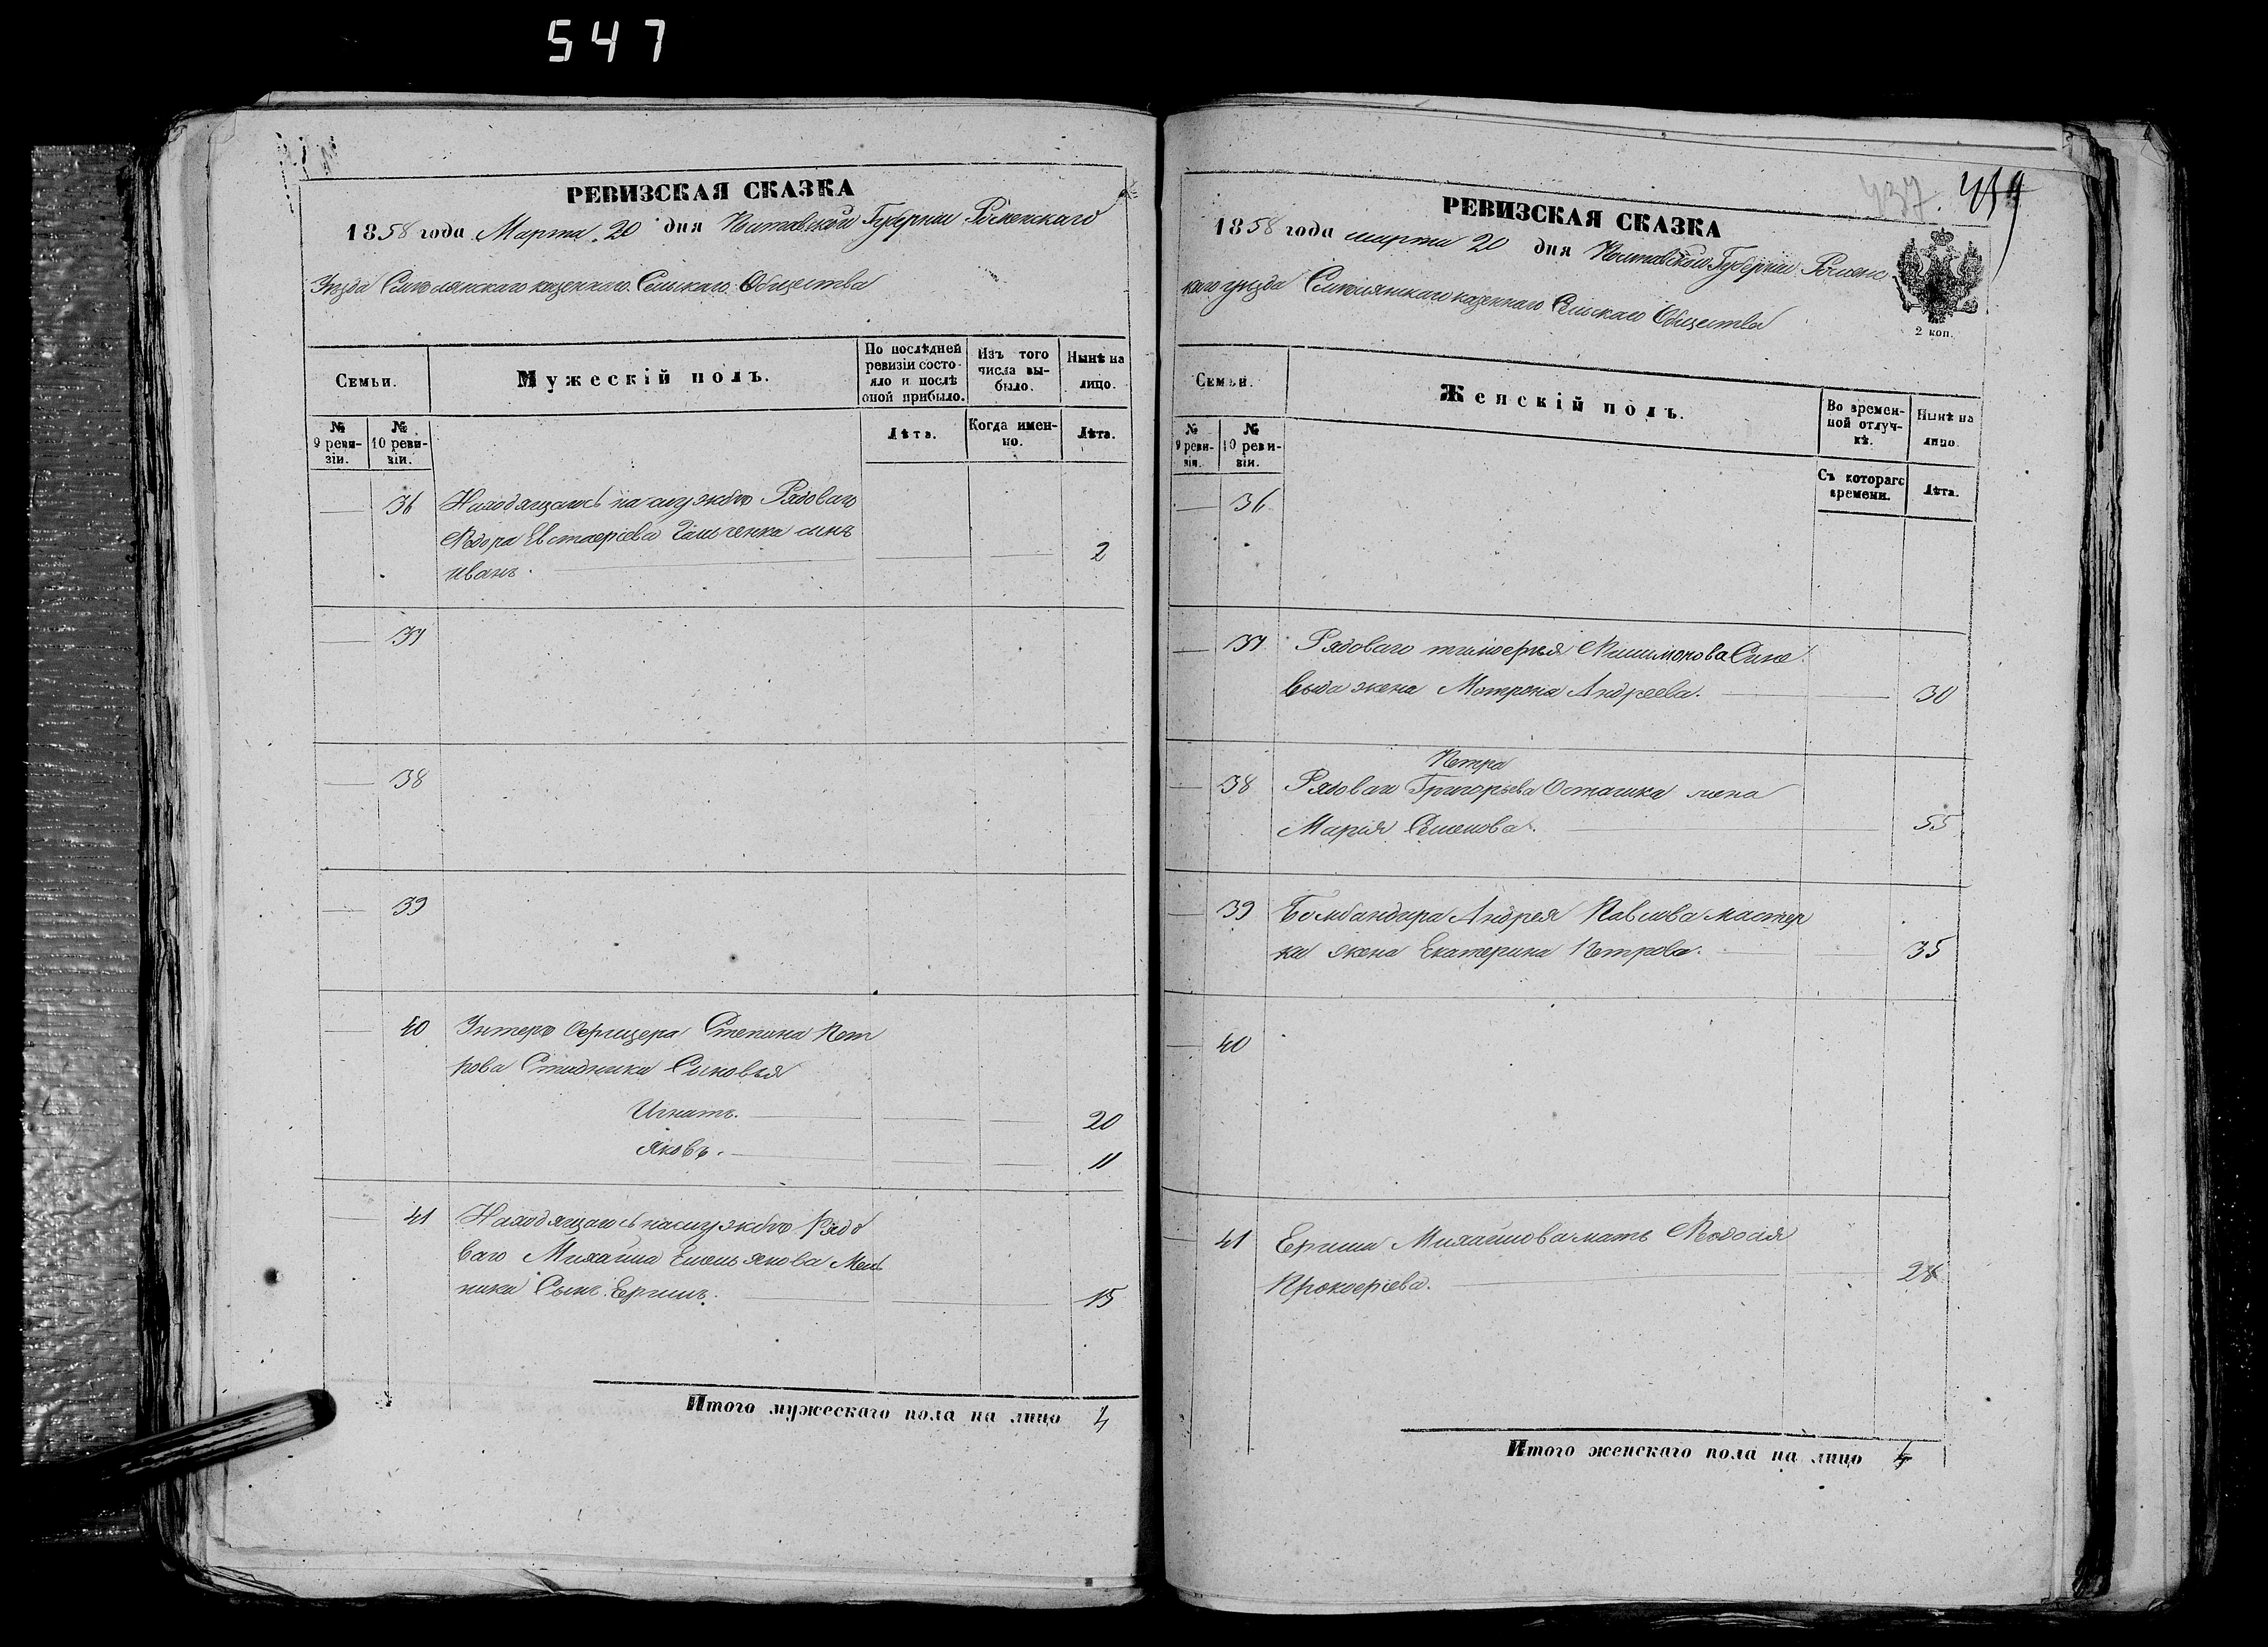 547
РЕВИЗСКАЯ СКАЗКА
1858 года Марта 20 дня Полтавской Губернии Роменскаго
Уезда казеннаго Сельскаго Общества
Семьи.
Мужескій полъ.
По послѣдней ревизіи состояло и послѣ оной прибыло.
Изъ того числа выбыло.
Нынѣ на лицо.
№ 9 ревизіи.
№ 10 ревизіи.
Лѣта.
Когда именно.
Лѣта.
36 Находящагось на службѣ Рядоваго
Ѳедора Евстафіева сынъ
Иванъ. 2
37
38
39
40 Унтеръ Офицера Степана Пет
рова Стадника Сыновья
Игнатъ. 20
Яковъ. 11
41 Находящагось на службѣ Рядо
ваго Михаила Емельянова Мель
ника Сынъ 15
Итого мужескаго пола на лицо 4
437. 459
РЕВИЗСКАЯ СКАЗКА
1858 года марта 20 дня Полтавской Губерніи Роменс
каго уезда казеннаго Сельскаго Общества
2 коп.
Семьи.
Женскій полъ.
Во временной отлучкѣ.
Нынѣ на лицо.
№ 9 ревизіи.
№ 10 ревизіи.
Съ котораго времени.
Лѣта.
36
37 Рядоваго
жена Мотрона Андреева. 30
Петра
38 Рядоваго Григорьева Осташка жена
Марія Семенова. 55
39 Бомбандира Андрея Павлова Мастер
ка жена Екатерина Петрова. 35
40
41 Михаилова мать Ѳедосія
Прокофіева. 28
Итого женскаго пола на лицо 4